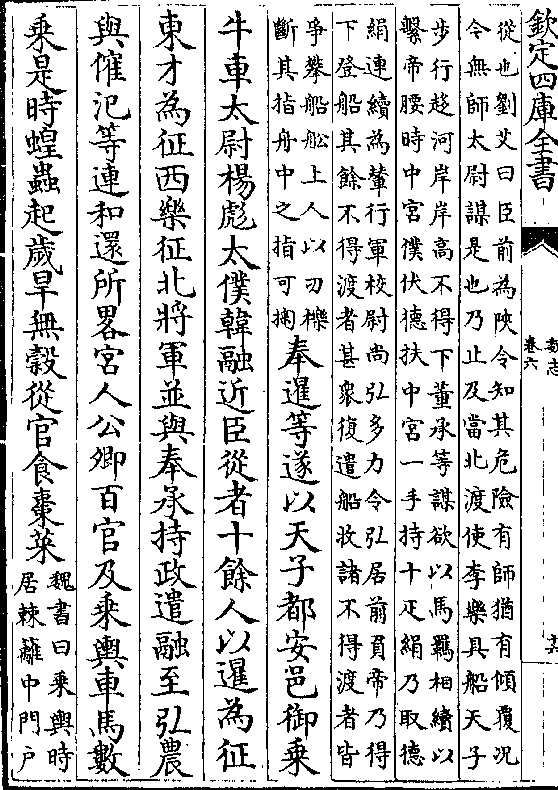 欽定四庫全書
魏志
卷六
從也劉艾曰臣前為陜令知其危險有師猶有傾覆況
令無師太尉謀是也乃止及當北渡使李樂具船天子
步行趍河岸岸高不得下董承等謀欲以馬羈相續以
繫帝腰時中宮僕伏德扶中宮一手持十疋絹乃取德
絹連續為輦行軍校尉尚弘多力令弘居前負帝乃得
下登船其餘不得渡者甚衆復遣船收諸不得渡者皆
爭攀船舩上人以刃櫟
斷其指舟中之指可掬
奉暹等遂以天子都安邑御乘
牛車太尉楊彪太僕韓融近臣從者十餘人以暹為征
東才為征西樂征北將軍並與奉承持政遣融至弘農
與傕汜等連和還所畧宮人公卿百官及乘輿車馬數
乘是時蝗蟲起歲旱無穀從官食棗菜
魏書曰乘輿時
居棘籬中門户